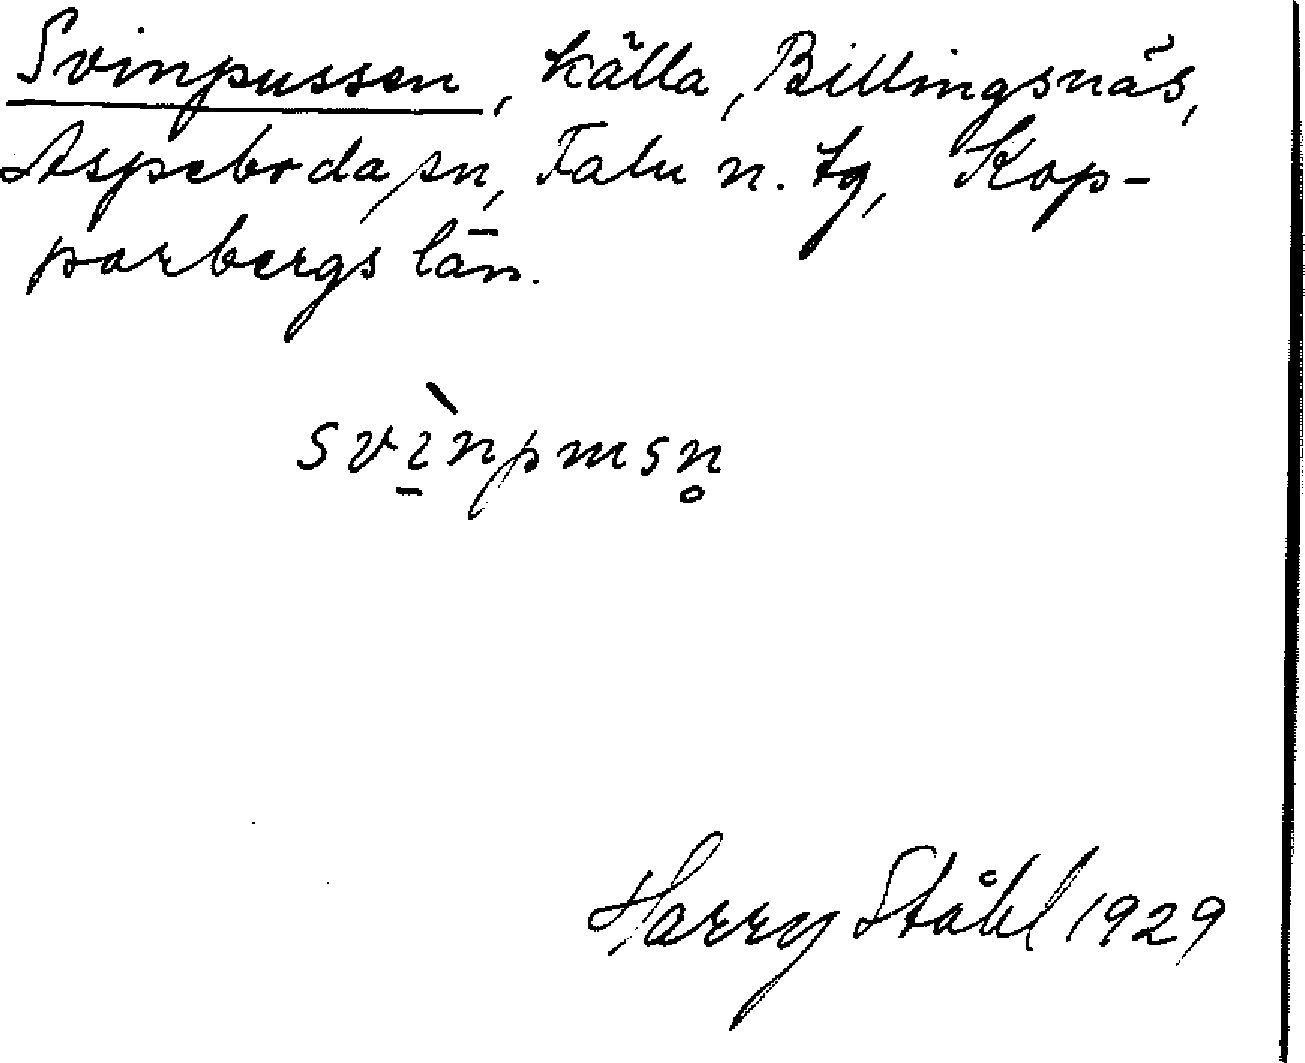 Svinpussen, källa, Billingsnäs,
Aspeboda sn, Falu n. tg, Kop-
parbergs län.
svı̱̀npɯsn̥
Harry Ståhl 1929